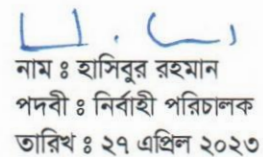 নাম ঃ হাসিবুর রহমান
পদবী ঃ নির্বাহী পরিচালক
তারিখ ঃ ২৭ এপ্রিল ২০২৩